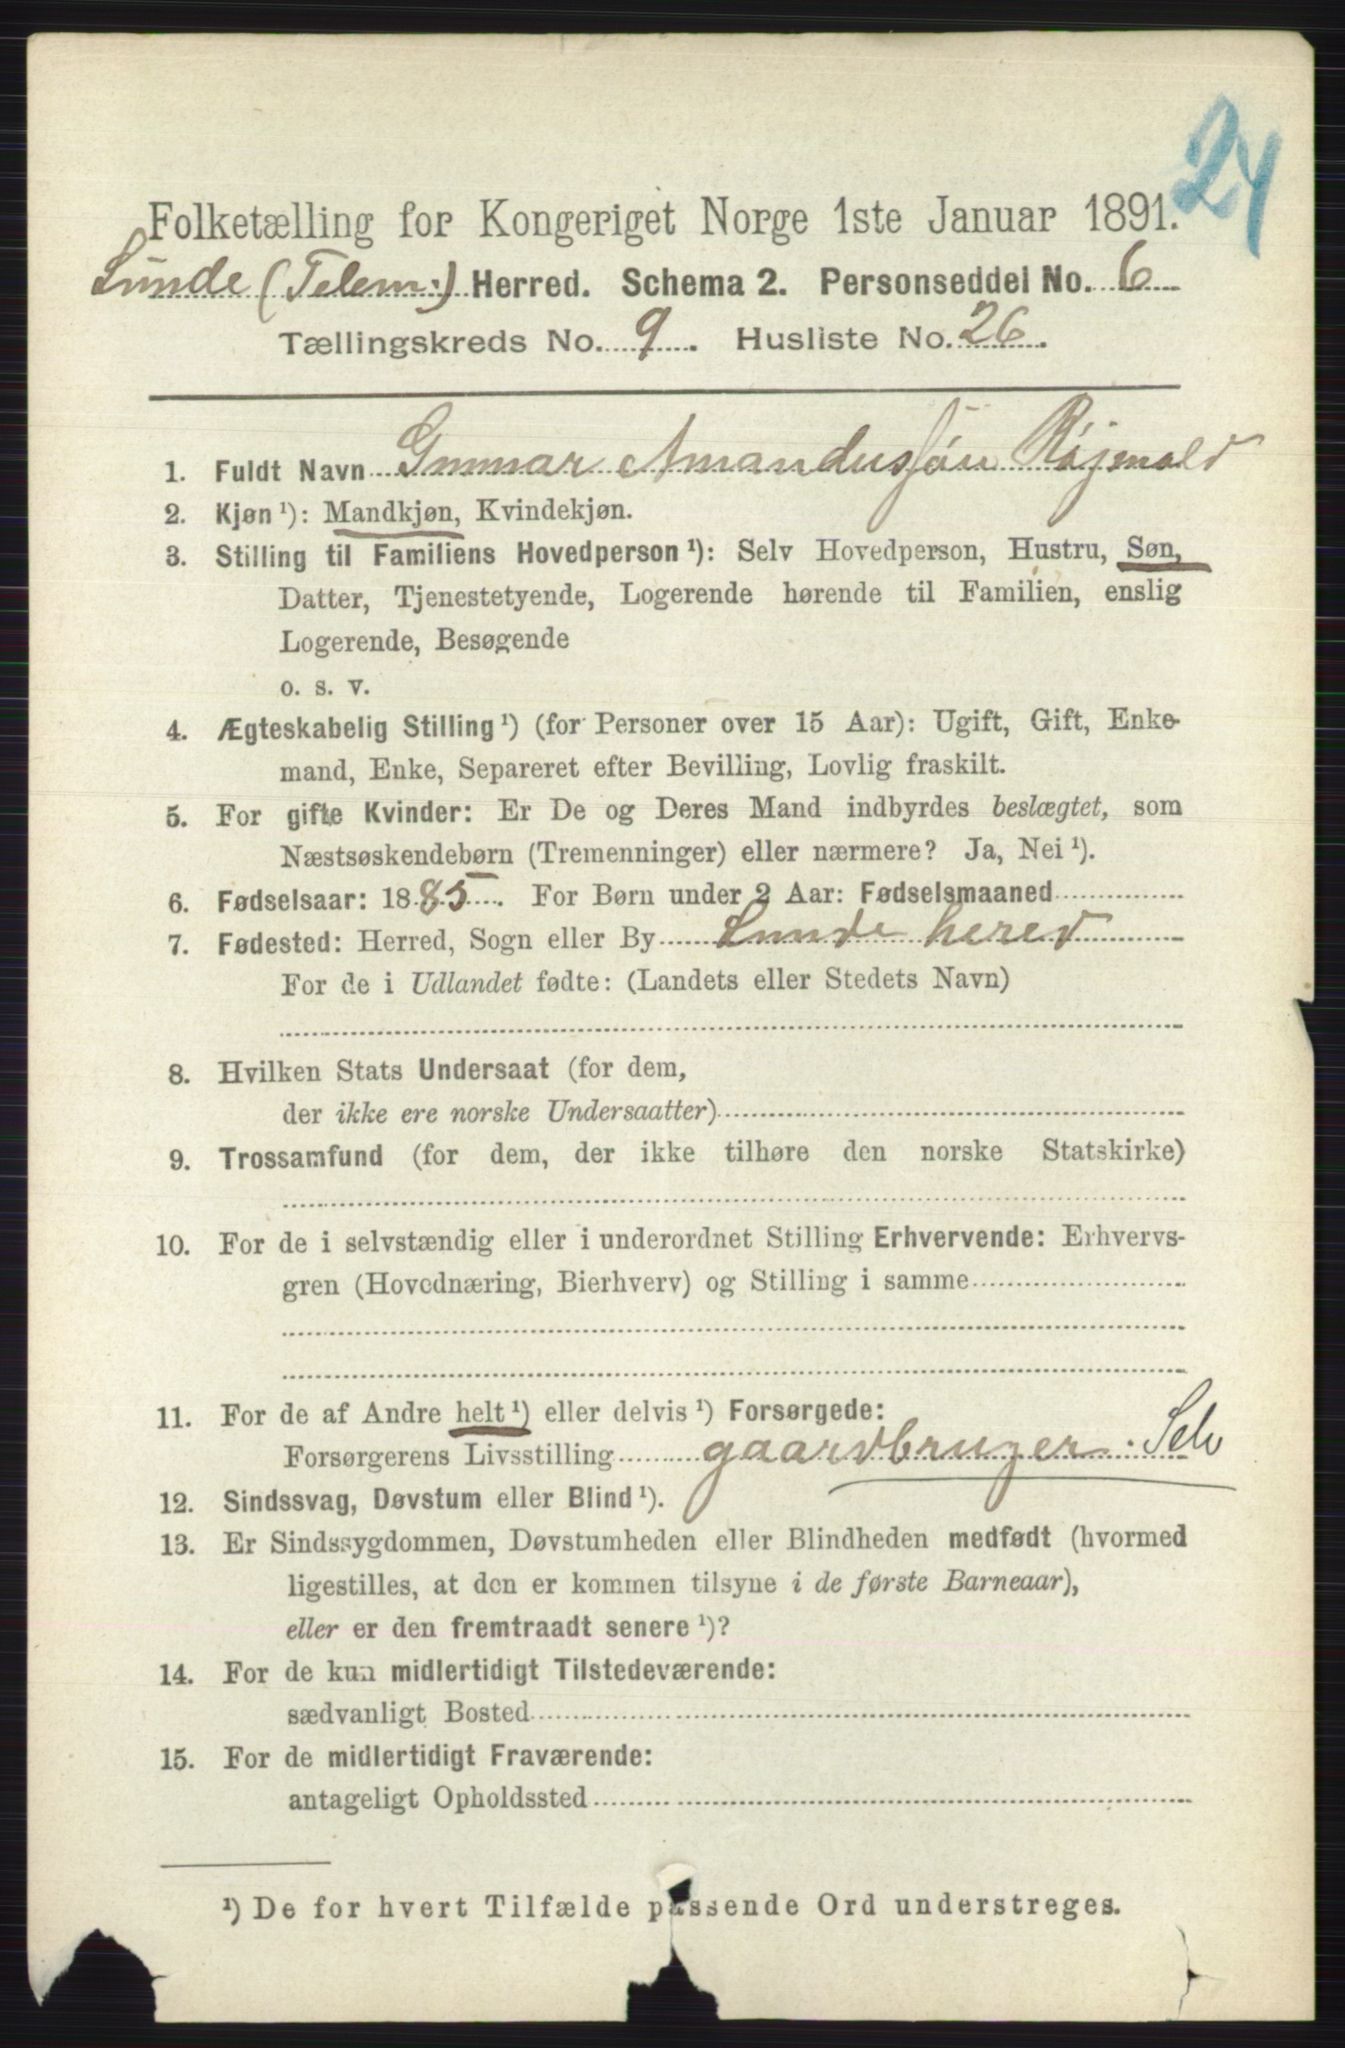 24
Folketælling for Kongeriget Norge 1ste Januar 1891.
Lunde (Telem:) Herred. Schema 2. Personseddel No. 6
Tællingskreds No. 9. Husliste No. 26.
1. Fuldt Navn Gunnar Amandussøn
2. Kjøn ¹): Mandkjøn, Kvindekjøn.
3. Stilling til Familiens Hovedperson ¹): Selv Hovedperson, Hustru, Søn,
Datter, Tjenestetyende, Logerende hørende til Familien, enslig
Logerende, Besøgende
o. s. v.
4. Ægteskabelig Stilling ¹) (for Personer over 15 Aar): Ugift, Gift, Enke-
mand, Enke, Separeret efter Bevilling, Lovlig fraskilt.
5. For gifte Kvinder: Er De og Deres Mand indbyrdes beslægtet, som
Næstsøskendebørn (Tremenninger) eller nærmere? Ja, Nei ¹).
6. Fødselsaar: 1885. For Børn under 2 Aar: Fødselsmaaned
7. Fødested: Herred, Sogn eller By Lunde hered
For de i Udlandet fødte: (Landets eller Stedets Navn)
8. Hvilken Stats Undersaat (for dem,
der ikke ere norske Undersaatter)
9. Trossamfund (for dem, der ikke tilhøre den norske Statskirke)
10. For de i selvstændig eller i underordnet Stilling Erhvervende: Erhvervs-
gren (Hovednæring, Bierhverv) og Stilling i samme
11. For de af Andre helt ¹) eller delvis ¹) Forsørgede:
Forsørgerens Livsstilling gaardbruger. Selv
12. Sindssvag, Døvstum eller Blind ¹).
13. Er Sindssygdommen, Døvstumheden eller Blindheden medfødt (hvormed
ligestilles, at den er kommen tilsyne i de første Barneaar),
eller er den fremtraadt senere ¹)?
14. For de kun midlertidigt Tilstedeværende:
sædvanligt Bosted
15. For de midlertidigt Fraværende:
antageligt Opholdssted
¹) De for hvert Tilfælde passende Ord understreges.